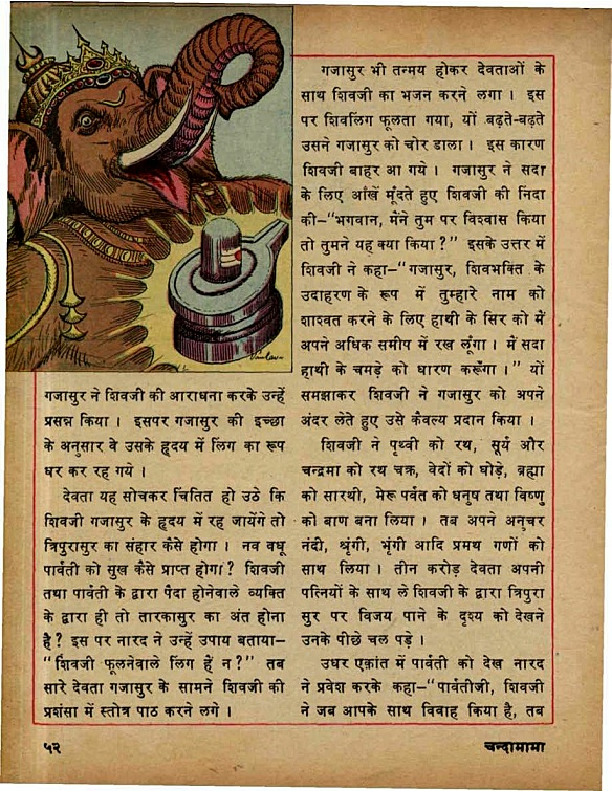 गजासुर ने शिवजी की आराधना करके उन्हें
प्रसन्न किया । इसपर गजासुर की इच्छा
के अनुसार वे उसके हृदय में लिंग का रूप
धर कर रह गये ।
देवता यह सोचकर चिंतित हो उठे कि
शिवजी गजासुर के हृदय में रह जायेंगे तो
त्रिपुरासुर का संहार कैसे होगा । नव वधू
पार्वती को सुख कैसे प्राप्त होगा? शिवजी
तथा पार्वती के द्वारा पैदा होनेवाले व्यक्ति
के द्वारा ही तो तारकासुर का अंत होना
है? इस पर नारद ने उन्हें उपाय बताया–
"शिवजी फूलनेवाले लिंग हैं न?" तब
सारे देवता गजासुर के सामने शिवजी की
प्रशंसा में स्तोत्र पाठ करने लगे ।
गजासुर भी तन्मय होकर देवताओं के
साथ शिवजी का भजन करने लगा । इस
पर शिवलिंग फूलता गया, यों बढ़ते-बढ़ते
उसने गजासुर को चोर डाला । इस कारण
शिवजी बाहर आ गये । गजासुर ने सदा
के लिए आंखें मूंदते हुए शिवजी की निंदा
की–"भगवान, मैंने तुम पर विश्वास किया
तो तुमने यह क्या किया?" इसके उत्तर में
शिवजी ने कहा–"गजासुर, शिवभक्ति के
उदाहरण के रूप में तुम्हारे नाम को
शाश्वत करने के लिए हाथी के सिर को में
अपने अधिक समीप में रख लूंगा । में सदा
हाथी के चमड़े को धारण करूंगा ।" यों
समझाकर शिवजी ने गजासुर को अपने
अंदर लेते हुए उसे कैवल्य प्रदान किया ।
शिवजी ने पृथ्वी को रथ, सूर्य और
चन्द्रमा को रथ चक्र, वेदों को घोड़े, ब्रह्मा
को सारथी, मेरू पर्वत को धनुष तथा विष्णु
को बाण बना लिया । तब अपने अनुचर
नंदी, श्रृंगी, भृंगी आदि प्रमथ गणों को
साथ लिया । तीन करोड़ देवता अपनी
पत्नियों के साथ ले शिवजी के द्वारा त्रिपुरा
सुर पर विजय पाने के दृश्य को देखने
उनके पीछे चल पड़े ।
उधर एकांत में पार्वती को देख नारद
ने प्रवेश करके कहा–"पार्वतीजी, शिवजी
ने जब आपके साथ विवाह किया है, तब
५२
चन्दामामा